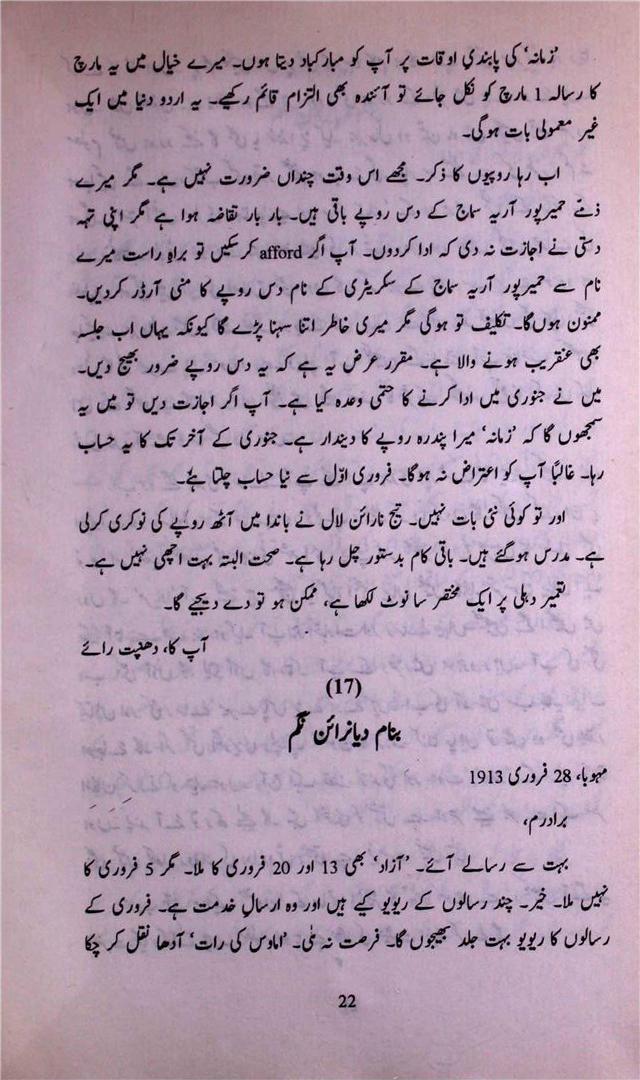 ’زمانہ‘ کی پابندیِ اوقات پر آپ کو مبارکباد دیتا ہوں۔ میرے خیال میں یہ مارچ
کا رسالہ 1 مارچ کو نکل جائے تو آئندہ بھی التزام قائم رکھیے۔ یہ اردو دنیا میں ایک
غیر معمولی بات ہوگی۔
اب رہا روپیوں کا ذکر۔ مجھے اس وقت چنداں ضرورت نہیں ہے۔ مگر میرے
ذمّے حمیرپور آریہ سماج کے دس روپے باقی ہیں۔ بار بار تقاضہ ہوا ہے مگر اپنی تہہ
دستی نے اجازت نہ دی کہ ادا کردوں۔ آپ اگر afford کرسکیں تو براہِ راست میرے
نام سے حمیرپور آریہ سماج کے سکریٹری کے نام دس روپے کا منی آرڈر کردیں۔
ممنون ہوں‌گا۔ تکلیف تو ہوگی مگر میری خاطر اتنا سہنا پڑے گا کیونکہ یہاں اب جلسہ
بھی عنقریب ہونے والا ہے۔ مقرر عرض یہ ہے کہ یہ دس روپے ضرور بھیج دیں۔
میں نے جنوری میں ادا کرنے کا حتمی وعدہ کیا ہے۔ آپ اگر اجازت دیں تو میں یہ
سمجھوں گا کہ ’زمانہ‘ میرا پندرہ روپے کا دیندار ہے۔ جنوری کے آخر تک کا یہ حساب
رہا۔ غالباً آپ کو اعتراض نہ ہوگا۔ فروری اوّل سے نیا حساب چلتا ہے۔
اور تو کوئی نئی بات نہیں۔ تیج نارائن لال نے باندا میں آٹھ روپے کی نوکری کرلی
ہے۔ مدرس ہوگئے ہیں۔ باقی کام بدستور چل رہا ہے۔ صحت البتہ بہت اچھی نہیں ہے۔
تعمیر دہلی پر ایک مختصر سا نوٹ لکھا ہے، ممکن ہو تو دے دیجیے گا۔
آپ کا، دھنپت رائے
(17)
بنام دیانرائن نگم
مہوبا، 28 فروری 1913
برادرم،
بہت سے رسالے آئے۔ ’آزاد‘ بھی 13 اور 20 فروری کا ملا۔ مگر 5 فروری کا
نہیں ملا۔ خیر۔ چند رسالوں کے ریویو کیے ہیں اور وہ ارسالِ خدمت ہے۔ فروری کے
رسالوں کا ریویو بہت جلد بھیجوں گا۔ فرصت نہ ملی۔ ’اماوس کی رات‘ آدھا نقل کر چکا
22